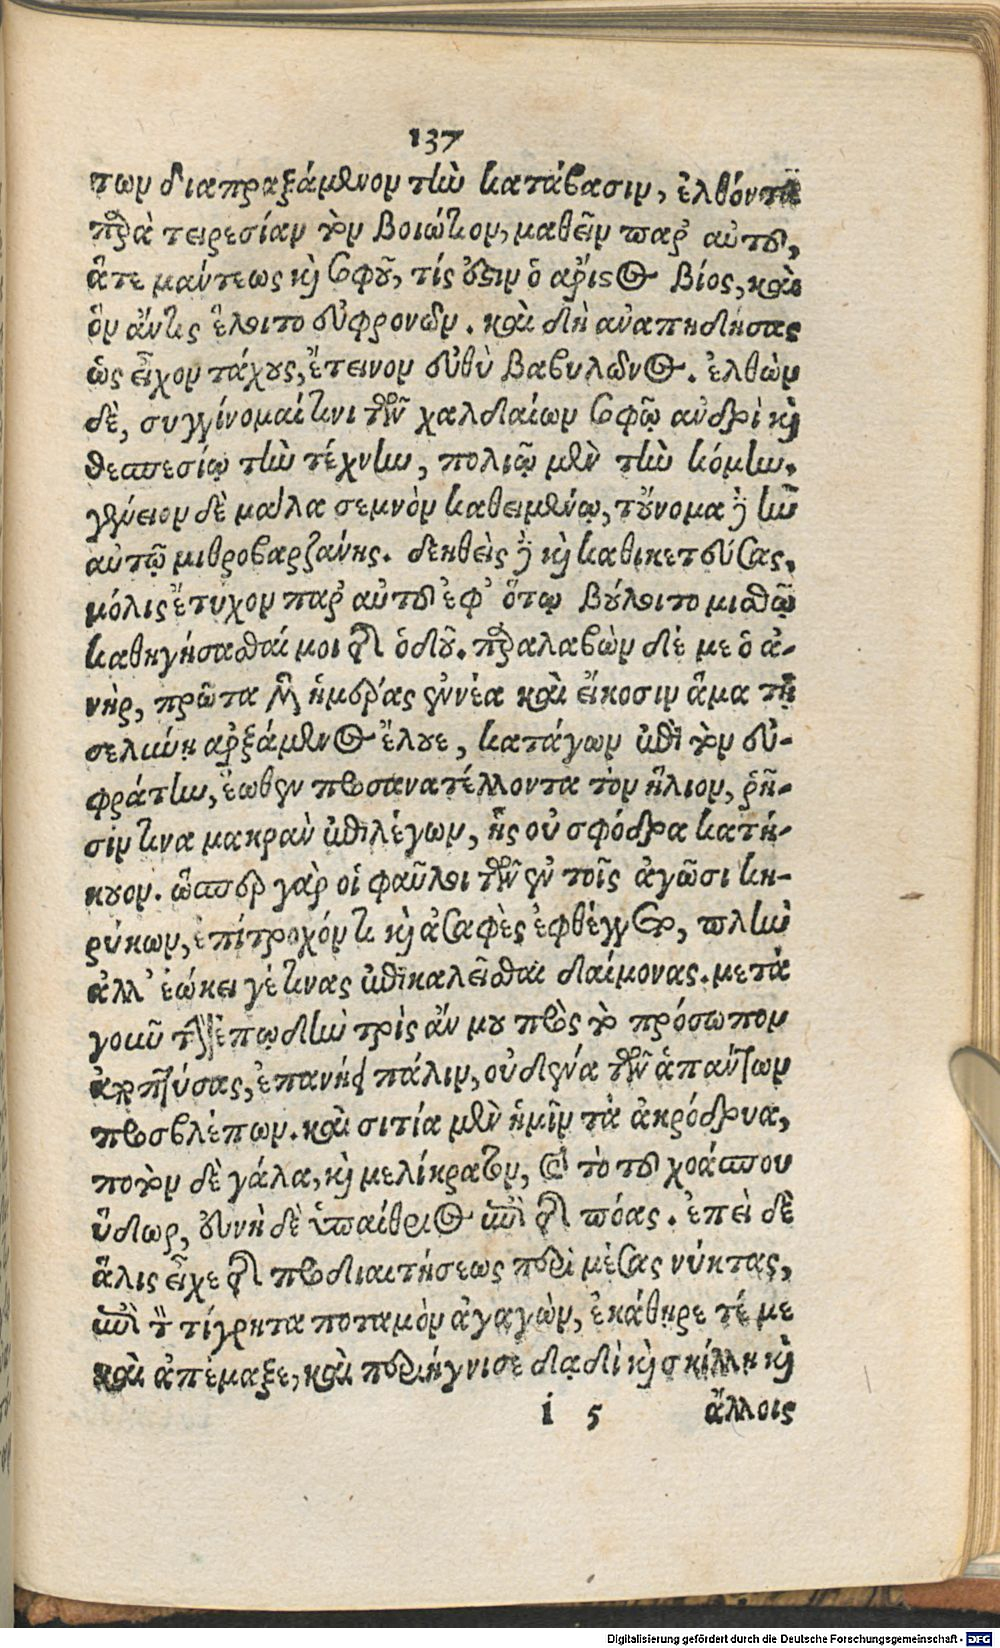 137
των διαπραξάμενον τὴν κατάβασιν, ἐλθόντα
παρὰ τειρεσίαν τὸν βοιώτιον, μαθεῖν παρ' αὐτοῦ,
ἅτε μάντεως καὶ σοφοῦ, τίς ἐστιν ὁ ἄριστος βίος, καὶ
ὃν ἄν τις ἕλοιτο εὐφρονῶν. καὶ δὴ ἀναπηδήσας
ὡς εἶχον τάχους, ἔτεινον εὐθὺ βαβυλῶνος. ἐλθὼν
δὲ, συγγίνομαί τινι τῶν χαλδαίων σοφῷ ἀνδρὶ καὶ
θεσπεσίῳ τὴν τέχνην, πολιῷ μὲν τὴν κόμην.
γένειον δὲ μάλα σεμνὸν καθειμένῳ, τοὔνομα δὲ ἦν
αὐτῷ μιθροβαρζάνης. δεηθεὶς δὲ καὶ καθικετεύσας,
μόλις ἔτυχον παρ' αὐτοῦ ἐφ' ὅτῳ βούλοιτο μισθῷ
καθηγήσασθαί μοι τῆς ὁδοῦ. παραλαβὼν δέ με ὁ ἀ-
νὴρ, πρῶτα μὲν ἡμέρας ἐννέα καὶ εἴκοσιν ἅμα τῇ
σελήνῃ ἀρξάμενος ἔλουε, κατάγων ἐπὶ τὸν εὐ-
φράτην, ἕωθεν προσανατέλλοντα τὸν ἥλιον, ῥῆ-
σίν τινα μακρὰν ἐπιλέγων, ἧς οὐ σφόδρα κατή-
κουον. ὥσπερ γὰρ οἱ φαῦλοι τῶν ἐν τοῖς ἀγῶσι κη-
ρύκων, ἐπίτροχόν τι καὶ ἀσαφὲς ἐφθέγγετο, πλὴν
ἀλλ' ἐῴκει γέ τινας ἐπικαλεῖσθαι δαίμονας. μετὰ
γοῦν τὴν ἐπῳδὴν τρὶς ἄν μου πρὸς τὸ πρόσωπον
ἀποπτύσας, ἐπανῄει πάλιν, οὐδένα τῶν ἀπαντων
προσβλέπων. καὶ σιτία μὲν ἡμῖν τὰ ἀκρόδρυα,
ποτὸν δὲ γάλα, καὶ μελίκρατον, καὶ τὸ τοῦ χοάσπου
ὕδωρ, εὐνὴ δὲ ὑπαίθριος ἐπὶ τῆς πόας. ἐπεὶ δὲ
ἅλις εἶχε τῆς προδιαιτήσεως περὶ μέσας νύκτας,
ἐπὶ τὸν τίγρητα ποταμὸν ἀγαγὼν, ἐκάθηρε τέ με
καὶ ἀπέμαξε, καὶ περιήγνισε δᾳδὶ καὶ σκίλλῃ καὶ
i 5 ἄλλοις
Digitalisierung gefördert durch die Deutsche Forschungsgemeinschaft - DFG